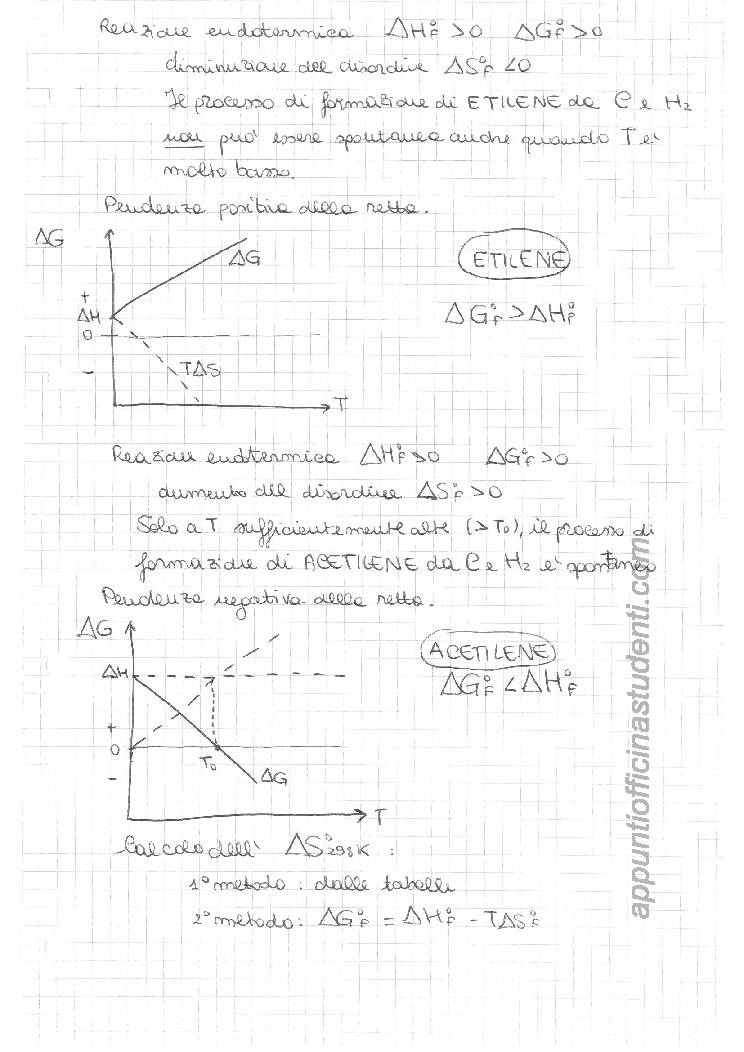 Reazione endotermica ΔH°F > 0 ΔG°F > 0
diminuzione del disordine ΔS°F < 0
Il processo di formazione di ETILENE da C e H2
non può essere spontanea anche quando T è
molto bassa.
Pendenza positiva della retta.
ΔG
ΔG
ETILENE
+
ΔH
ΔG°F > ΔH°F
0
TΔS
-
T
Reazione endotermica ΔH°F > 0 ΔG°F > 0
aumento del disordine ΔS°F > 0
Solo a T sufficientemente alte (> T0), il processo di
formazione di ACETILENE da C e H2 è spontaneo
Pendenza negativa della retta.
ΔG
ACETILENE
ΔH
ΔG°F < ΔH°F
+
0
T0
-
ΔG
T
Calcolo dell' ΔS°298K :
1° metodo : dalle tabelle
2° metodo : ΔG°F = ΔH°F - TΔS°F
appuntiofficinastudenti.com